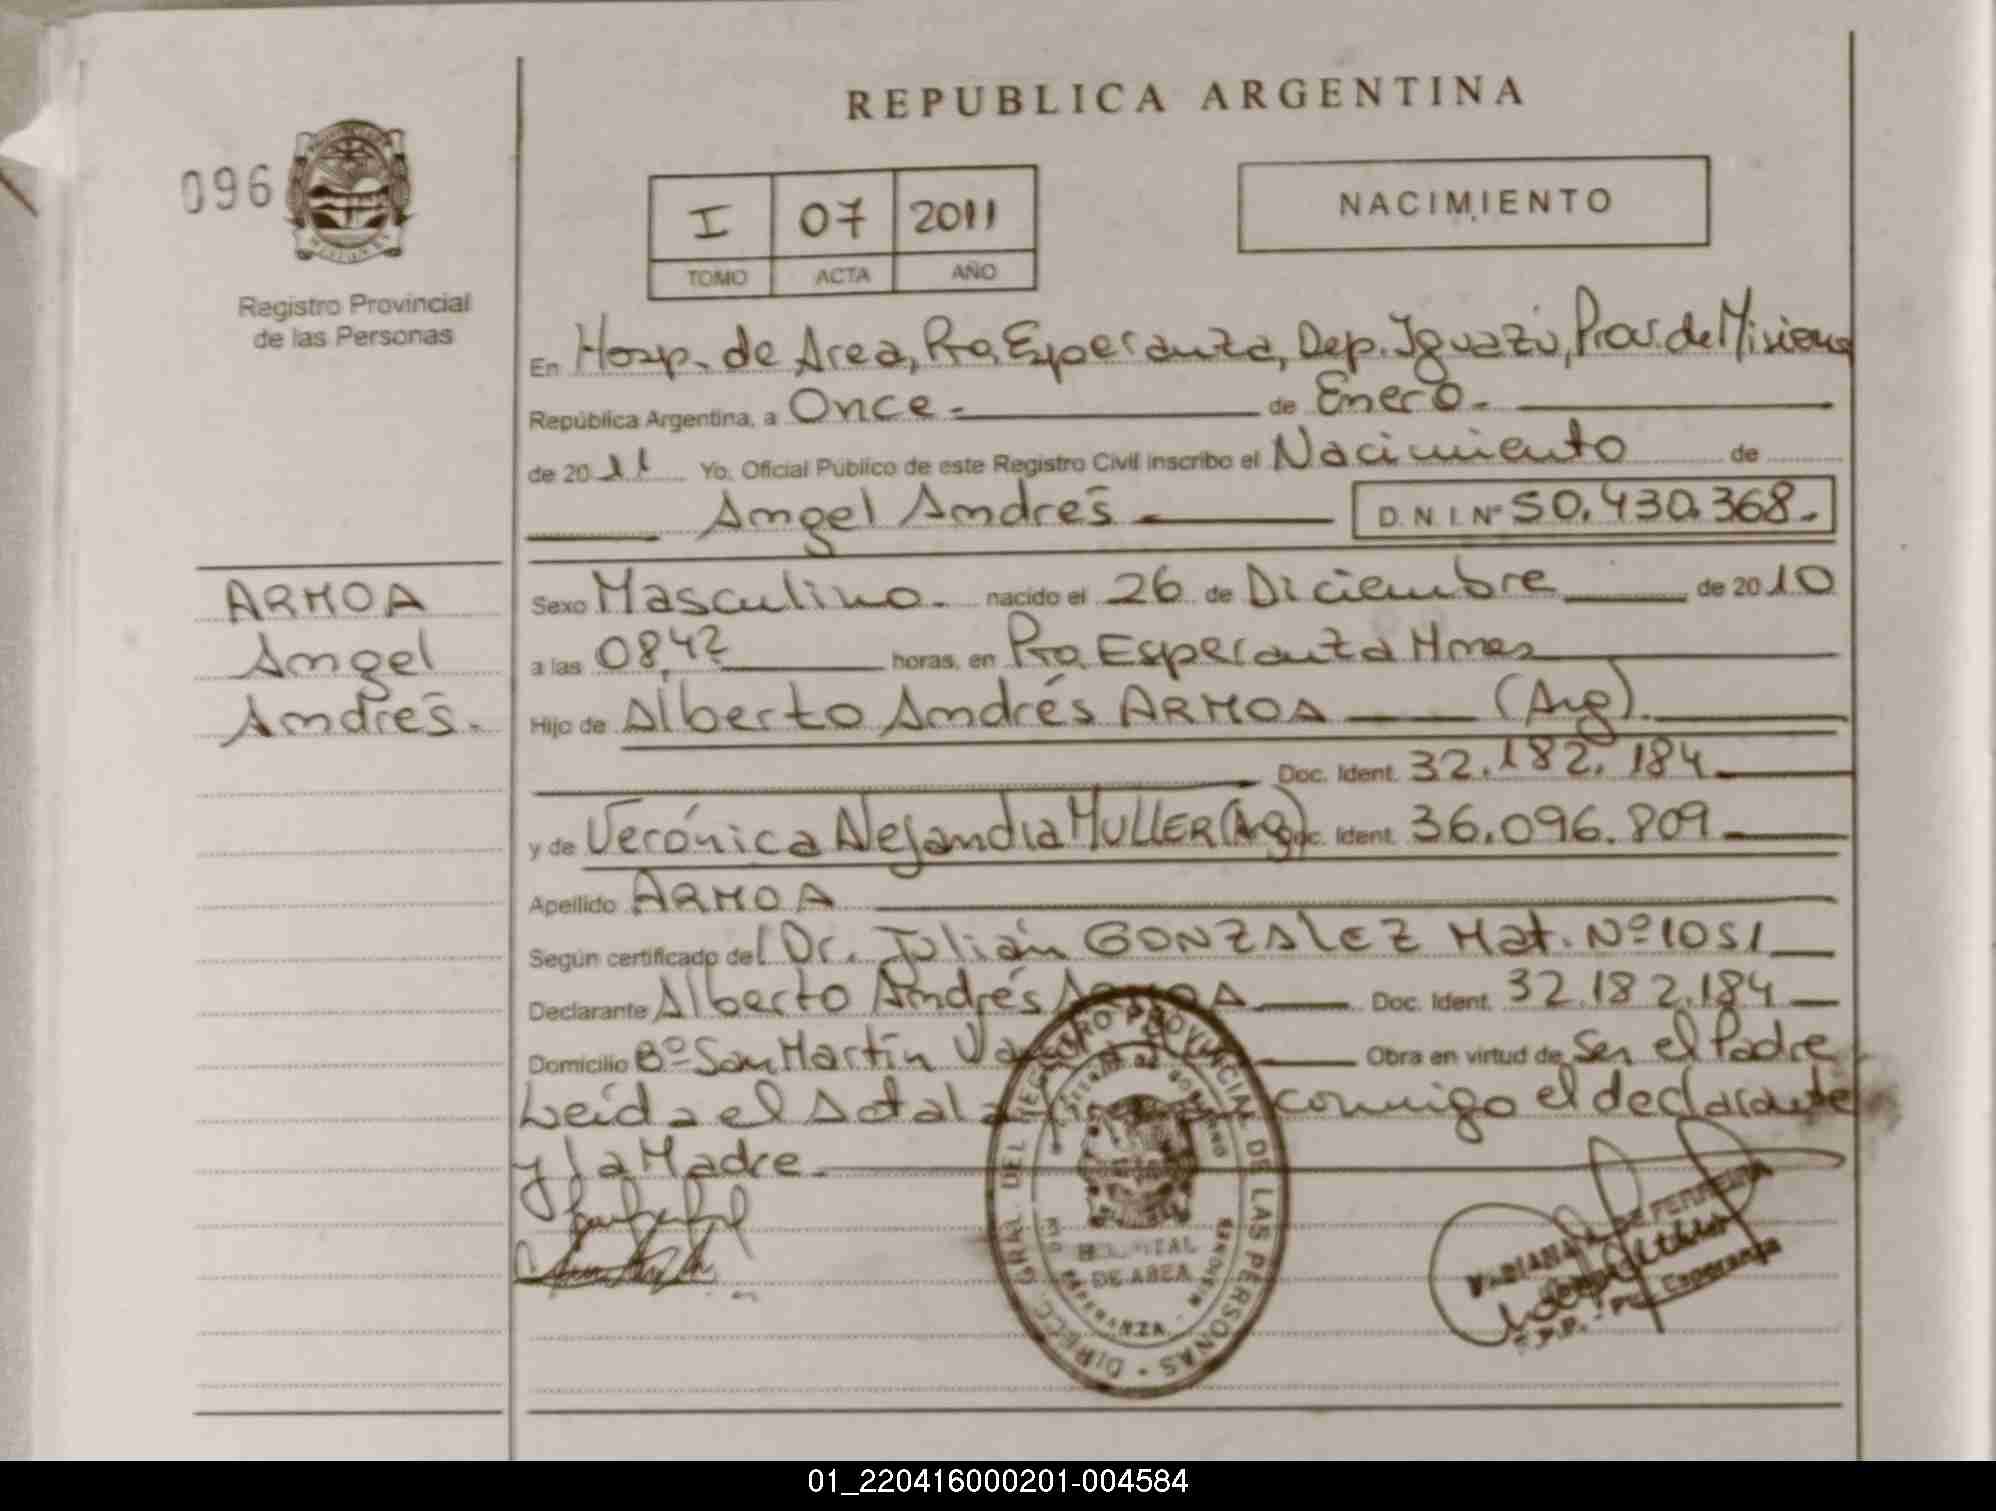 REPUBLICA ARGENTINA
096
I 07 2011
TOMO ACTA AÑO
NACIMIENTO
Registro Provincial
de las Personas
En Hosp. de Area, Pto. Esperanza, Dep. Iguazú, Prov. de Misiones
República Argentina, a Once.- de Enero.-
de 2011 Yo, Oficial Público de este Registro Civil inscribo el Nacimiento de
Angel Andrés D.N.I. Nº 50.430.368.-
ARMOA
Angel
Andrés.-
Sexo Masculino.- nacido el 26 de Diciembre de 2010
a las 08,42 horas, en Pto. Esperanza Mnes
Hijo de Alberto Andrés ARMOA (Arg).
Doc. Ident. 32.182.184
y de Verónica Alejandra MULLER (Arg) Doc. Ident. 36.096.809
Apellido ARMOA
Según certificado del Dr. Julián GONZALEZ Mat. Nº 1051
Declarante Alberto Andrés ARMOA Doc. Ident. 32.182.184
Domicilio Bº San Martín Obra en virtud de Ser el Padre
Leída el conmigo el declarante
y la Madre.-
DIRECC. GRAL. DEL REGISTRO PROVINCIAL DE LAS PERSONAS
HOSPITAL
DE AREA
ESPERANZA
DE FERREYRA
Esperanza
01_220416000201-004584